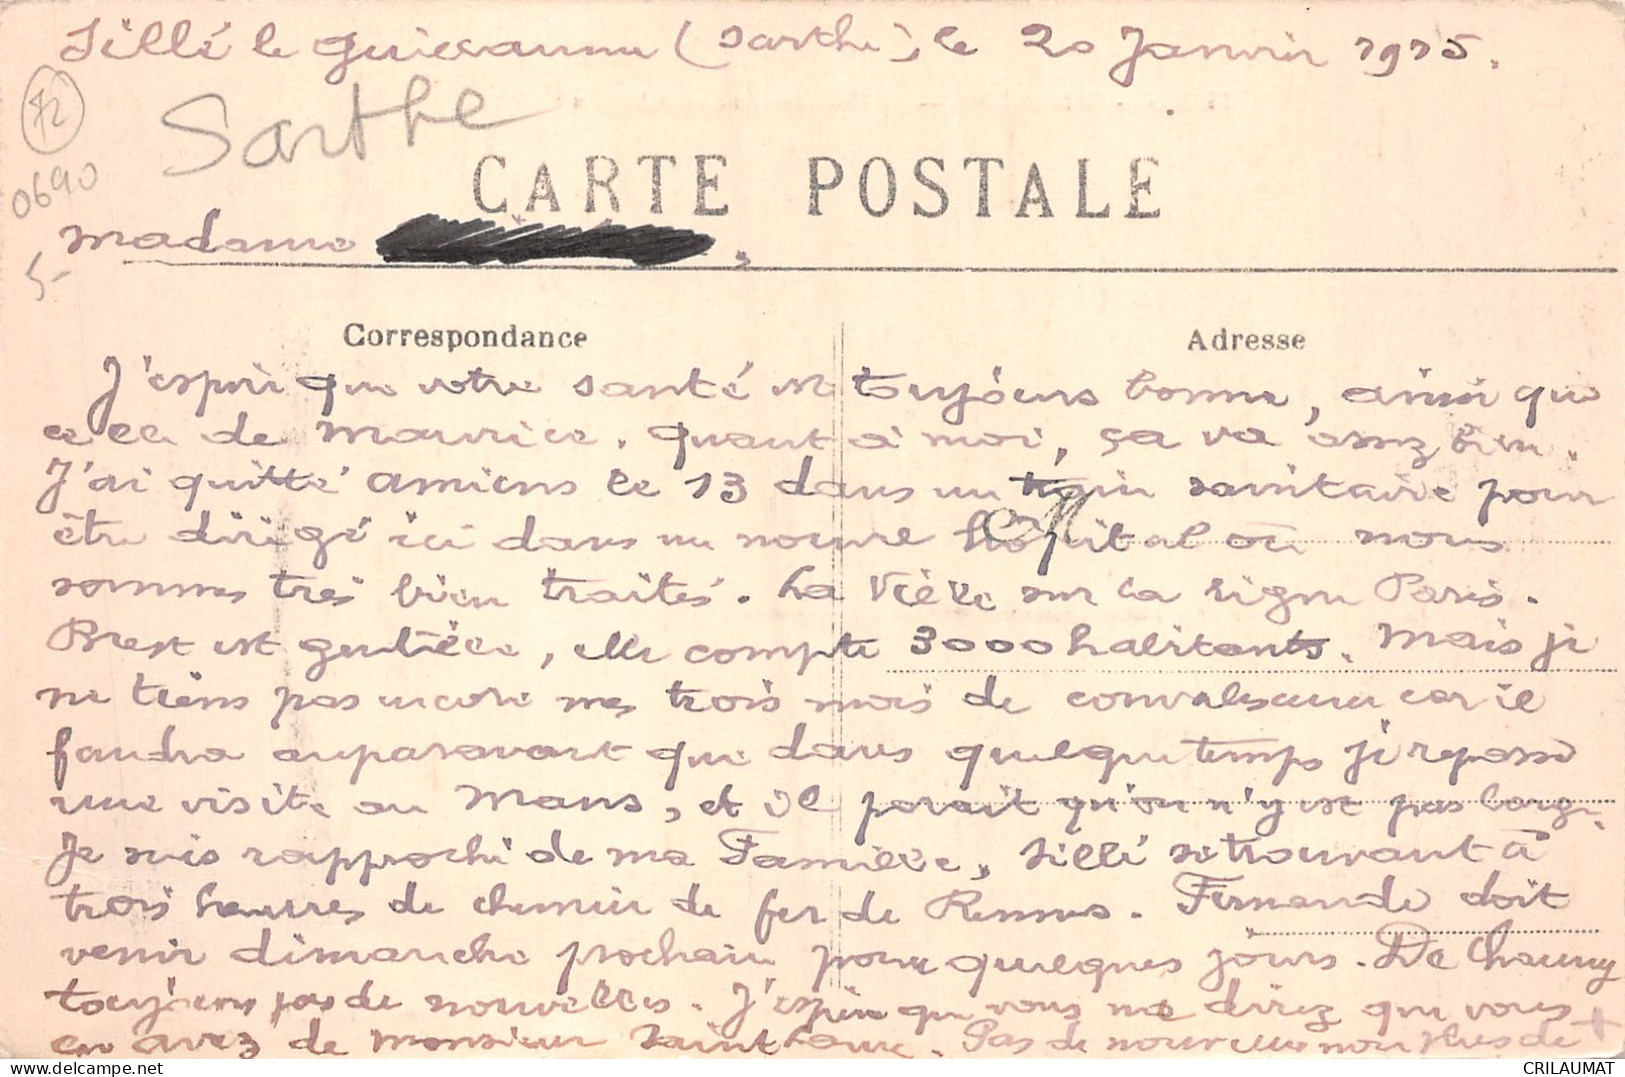 Sillé le Guillaume (Sarthe), le 20 Janvier 1915.
72
Sarthe
0690
CARTE POSTALE
Madame
5-
Correspondance
Adresse
J'espère que votre santé est toujours bonne, ainsi que
celle de Maurice. Quant à moi, ça va assez bien.
J'ai quitté Amiens le 13 dans un train sanitaire pour
être dirigé ici dans un nouvel hôpital où nous
sommes très bien traités. La Ville sur la ligne Paris.
Brest est gentille, elle compte 3000 habitants. Mais je
ne tiens pas encore mes trois mois de convalescence car il
faudra auparavant que dans quelque temps je repasse
une visite au Mans, et il parait qu'on n'y est pas large.
Je suis rapproché de ma Famille, Sillé se trouvant à
trois heures de chemin de fer de Rennes. Fernande doit
venir dimanche prochain pour quelques jours. De Chauny
toujours pas de nouvelles. J'espère que vous me direz que vous
en avez de Monsieur Saint. Pas de nouvelles non plus de +
CRILAUMAT